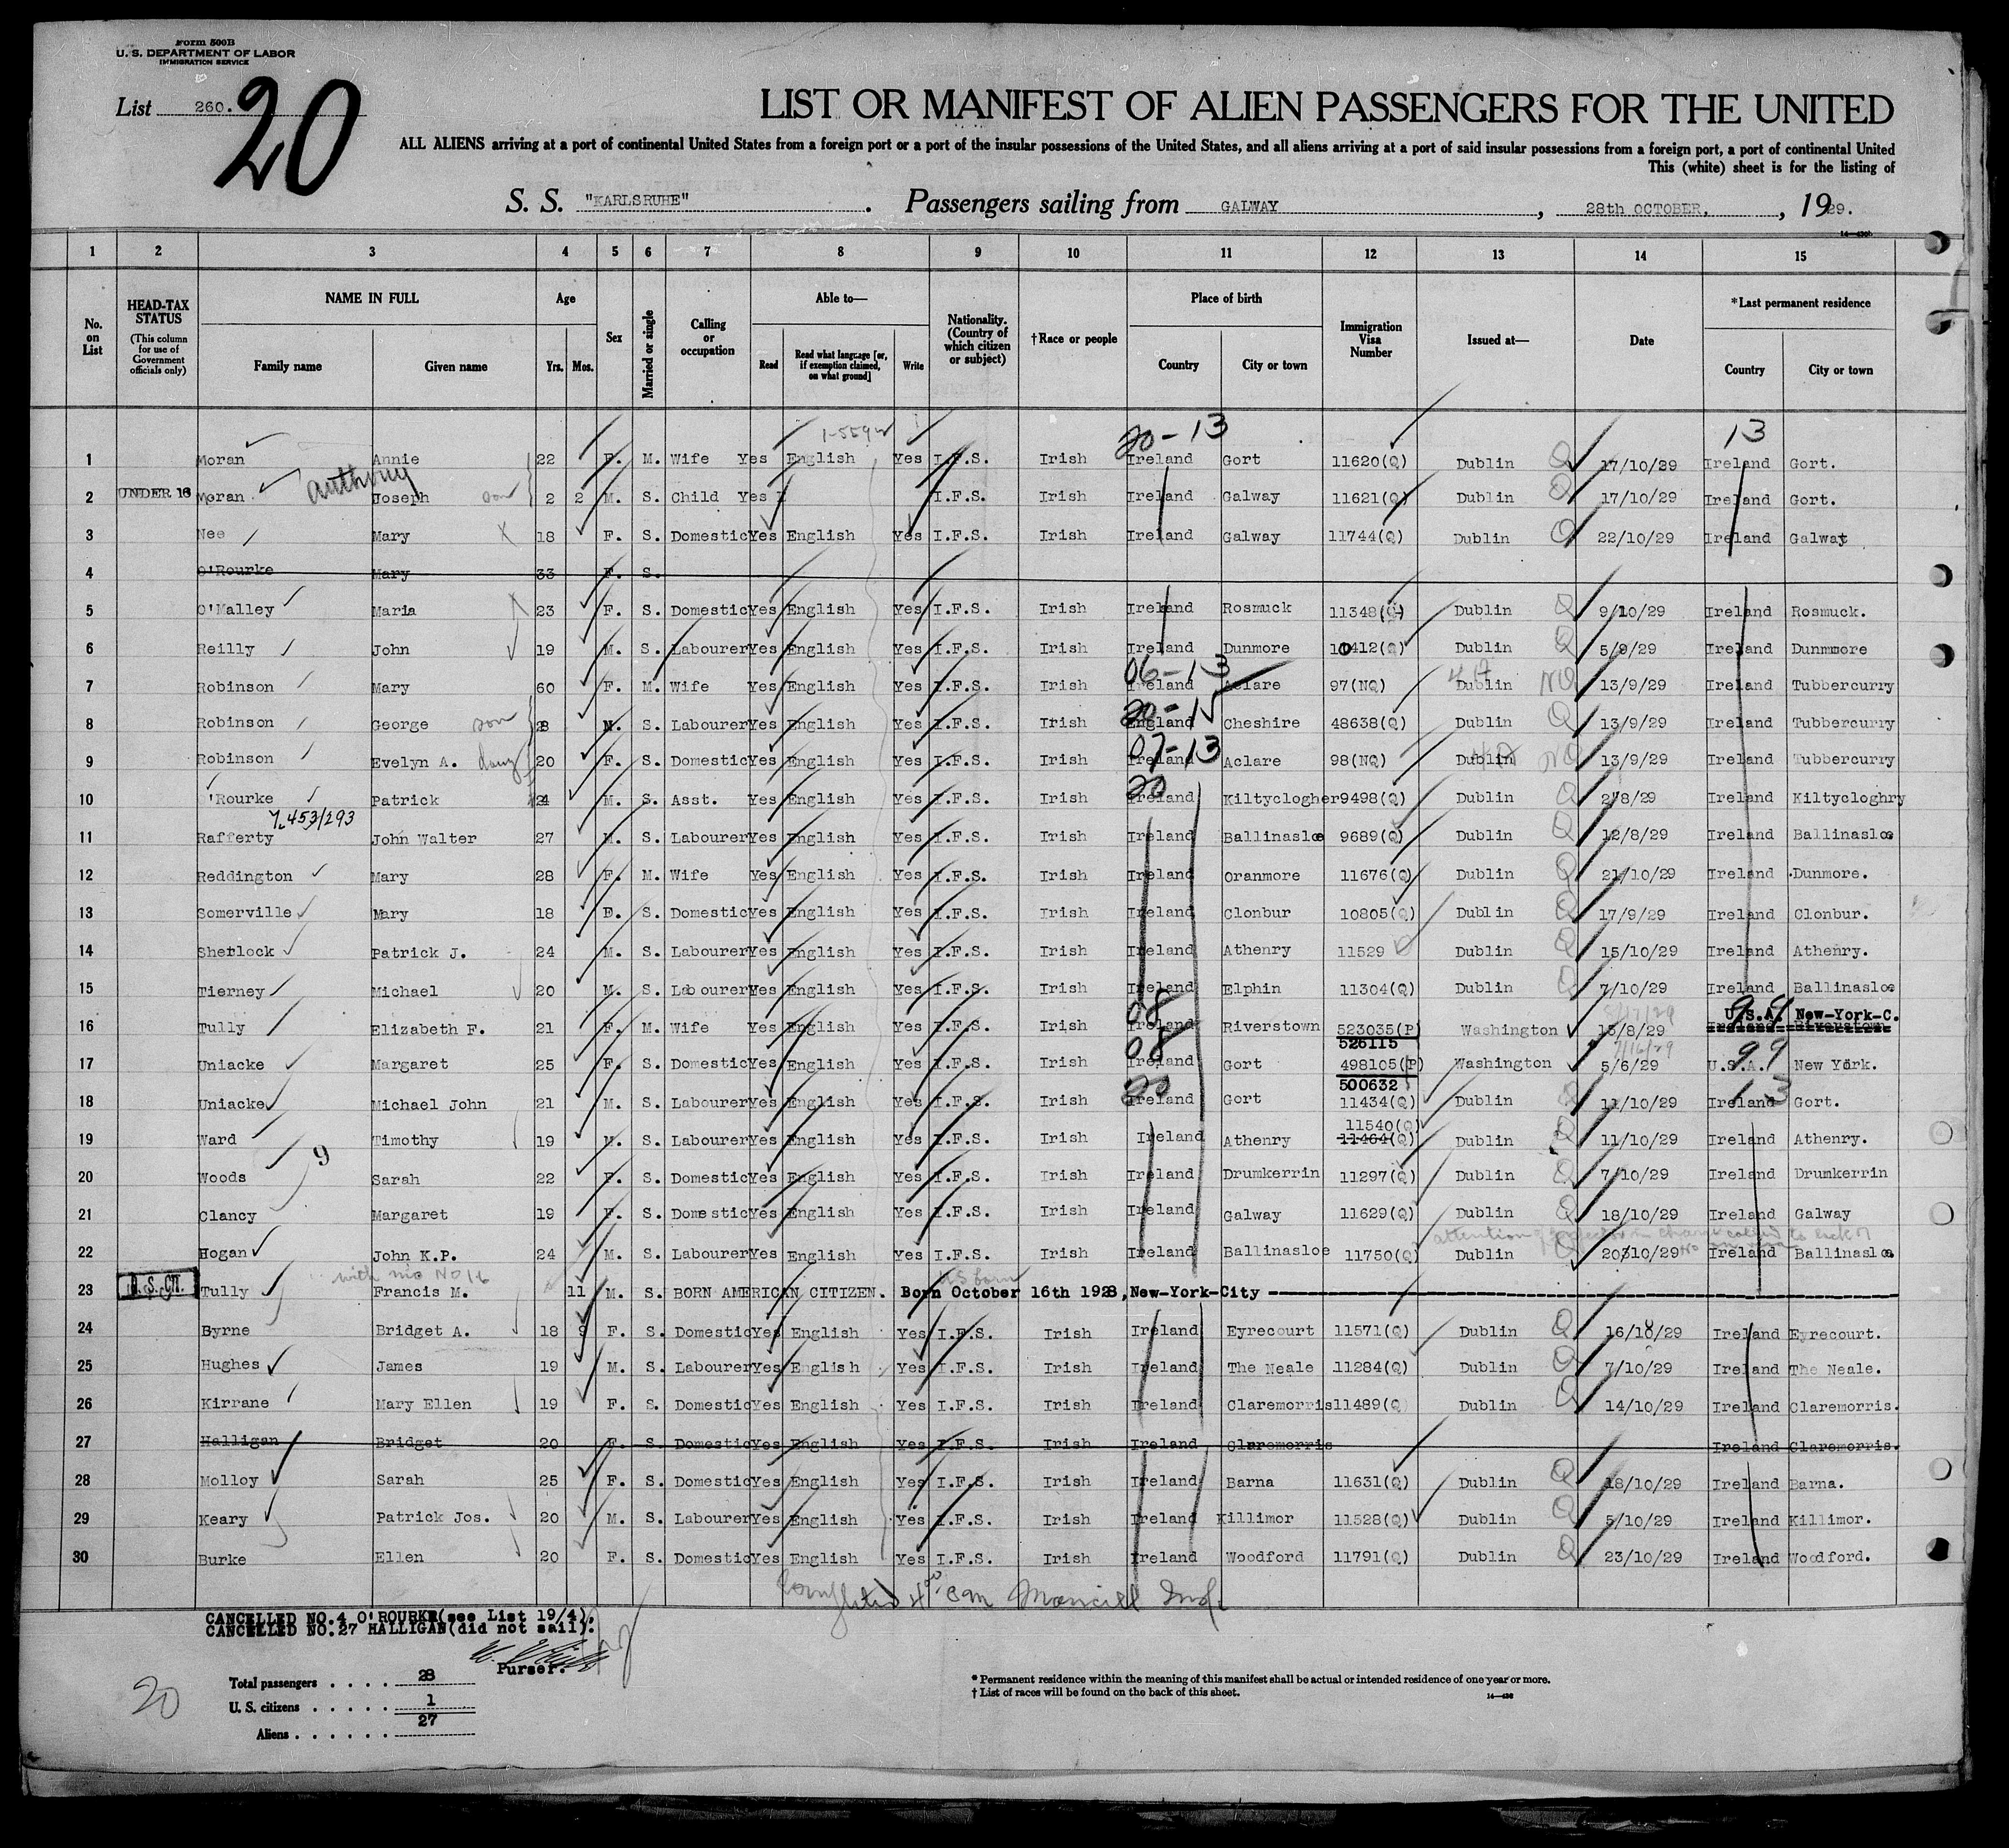 Form 500B
U. S. DEPARTMENT OF LABOR
IMMIGRATION SERVICE
List 260.
20
LIST OR MANIFEST OF ALIEN PASSENGERS FOR THE UNITED
ALL ALIENS arriving at a port of continental United States from a foreign port or a port of the insular possessions of the United States, and all aliens arriving at a port of said insular possessions from a foreign port, a port of continental United
This (white) sheet is for the listing of
S. S. "KARLSRUHE" . Passengers sailing from GALWAY , 28th OCTOBER, , 1929.
1 2 3 4 5 6 7 8 9 10 11 12 13 14 15
No. on List
HEAD-TAX STATUS (This column for use of Government officials only)
NAME IN FULL Family name Given name
Age Yrs. Mos.
Sex
Married or single
Calling or occupation
Able to— Read Read what language [or, if exemption claimed, on what ground] Write
Nationality. (Country of which citizen or subject)
†Race or people
Place of birth Country City or town
Immigration Visa Number
Issued at—
Date
*Last permanent residence Country City or town
20-13 13
1 Moran Annie 22 F. M. Wife Yes English Yes I.F.S. Irish Ireland Gort 11620(Q) Dublin Q 17/10/29 Ireland Gort.
2 UNDER 16 Moran Anthony Joseph son 2 2 M. S. Child Yes I.F.S. Irish Ireland Galway 11621(Q) Dublin Q 17/10/29 Ireland Gort.
3 Nee Mary X 18 F. S. Domestic Yes English Yes I.F.S. Irish Ireland Galway 11744(Q) Dublin Q 22/10/29 Ireland Galway
4 O'Rourke Mary 33 F. S.
5 O'Malley Maria 23 F. S. Domestic Yes English Yes I.F.S. Irish Ireland Rosmuck 11348(Q) Dublin Q 9/10/29 Ireland Rosmuck.
6 Reilly John 19 M. S. Labourer Yes English Yes I.F.S. Irish Ireland Dunmore 10412(Q) Dublin Q 5/9/29 Ireland Dunmmore
06-13
7 Robinson Mary 60 F. M. Wife Yes English Yes I.F.S. Irish Ireland Aclare 97(NQ) Dublin NQ 13/9/29 Ireland Tubbercurry
8 Robinson George son M. S. Labourer Yes English Yes I.F.S. Irish England Cheshire 48638(Q) Dublin Q 13/9/29 Ireland Tubbercurry
07-13
9 Robinson Evelyn A. 20 F. S. Domestic Yes English Yes I.F.S. Irish Ireland Aclare 98(NQ) Dublin NQ 13/9/29 Ireland Tubbercurry
20
10 O'Rourke Patrick M. S. Asst. Yes English Yes I.F.S. Irish Ireland Kiltyclogher 9498(Q) Dublin Q 2/8/29 Ireland Kiltycloghry
11 Rafferty John Walter 27 M. S. Labourer Yes English Yes I.F.S. Irish Ireland Ballinasloe 9689(Q) Dublin Q 12/8/29 Ireland Ballinasloe
12 Reddington Mary 28 F. M. Wife Yes English Yes I.F.S. Irish Ireland Oranmore 11676(Q) Dublin Q 21/10/29 Ireland Dunmore.
13 Somerville Mary 18 F. S. Domestic Yes English Yes I.F.S. Irish Ireland Clonbur 10805(Q) Dublin Q 17/9/29 Ireland Clonbur.
14 Sherlock Patrick J. 24 M. S. Labourer Yes English Yes I.F.S. Irish Ireland Athenry 11529 Dublin Q 15/10/29 Ireland Athenry.
15 Tierney Michael 20 M. S. Labourer Yes English Yes I.F.S. Irish Ireland Elphin 11304(Q) Dublin Q 7/10/29 Ireland Ballinasloe
08 99
16 Tully Elizabeth F. 21 F. M. Wife Yes English Yes I.F.S. Irish Ireland Riverstown 523035(P) 526115 Washington 13/8/29 U.S.A. New-York-C. Ireland Riverstown
08 7/16/29 99
17 Uniacke Margaret 25 F. S. Domestic Yes English Yes I.F.S. Irish Ireland Gort 498105(P) 500632 Washington 5/6/29 U.S.A. New York.
20 13
18 Uniacke Michael John 21 M. S. Labourer Yes English Yes I.F.S. Irish Ireland Gort 11434(Q) Dublin 11/10/29 Ireland Gort.
19 Ward Timothy 19 M. S. Labourer Yes English Yes I.F.S. Irish Ireland Athenry 11540(Q) 11464(Q) Dublin Q 11/10/29 Ireland Athenry.
9
20 Woods Sarah 22 F. S. Domestic Yes English Yes I.F.S. Irish Ireland Drumkerrin 11297(Q) Dublin Q 7/10/29 Ireland Drumkerrin
21 Clancy Margaret 19 F. S. Domestic Yes English Yes I.F.S. Irish Ireland Galway 11629(Q) Dublin Q 18/10/29 Ireland Galway
22 Hogan John K.P. 24 M. S. Labourer Yes English Yes I.F.S. Irish Ireland Ballinasloe 11750(Q) Dublin Ireland Ballinasloe
with mo No 16 US born
23 Tully Francis M. 11 M. S. BORN AMERICAN CITIZEN. Born October 16th 1928, New-York-City
24 Byrne Bridget A. 18 9 F. S. Domestic Yes English Yes I.F.S. Irish Ireland Eyrecourt 11571(Q) Dublin Q 16/10/29 Ireland Eyrecourt.
25 Hughes James 19 M. S. Labourer Yes English Yes I.F.S. Irish Ireland The Neale 11284(Q) Dublin Q 7/10/29 Ireland The Neale.
26 Kirrane Mary Ellen 19 F. S. Domestic Yes English Yes I.F.S. Irish Ireland Claremorris 11489(Q) Dublin Q 14/10/29 Ireland Claremorris.
27 Halligan Bridget 20 F. S. Domestic Yes English Yes I.F.S. Irish Ireland Claremorris Ireland Claremorris.
28 Molloy Sarah 25 F. S. Domestic Yes English Yes I.F.S. Irish Ireland Barna 11631(Q) Dublin Q 18/10/29 Ireland Barna.
29 Keary Patrick Jos. 20 M. S. Labourer Yes English Yes I.F.S. Irish Ireland Killimor 11528(Q) Dublin Q 5/10/29 Ireland Killimor.
30 Burke Ellen 20 F. S. Domestic Yes English Yes I.F.S. Irish Ireland Woodford 11791(Q) Dublin Q 23/10/29 Ireland Woodford.
CANCELLED NO.4 O'ROURKE(see List 19/4),
CANCELLED NO.27 HALLIGAN(did not sail).
Purser.
20
Total passengers . . . . 28
U. S. citizens . . . . . 1
Aliens . . . . . . 27
* Permanent residence within the meaning of this manifest shall be actual or intended residence of one year or more.
† List of races will be found on the back of this sheet.